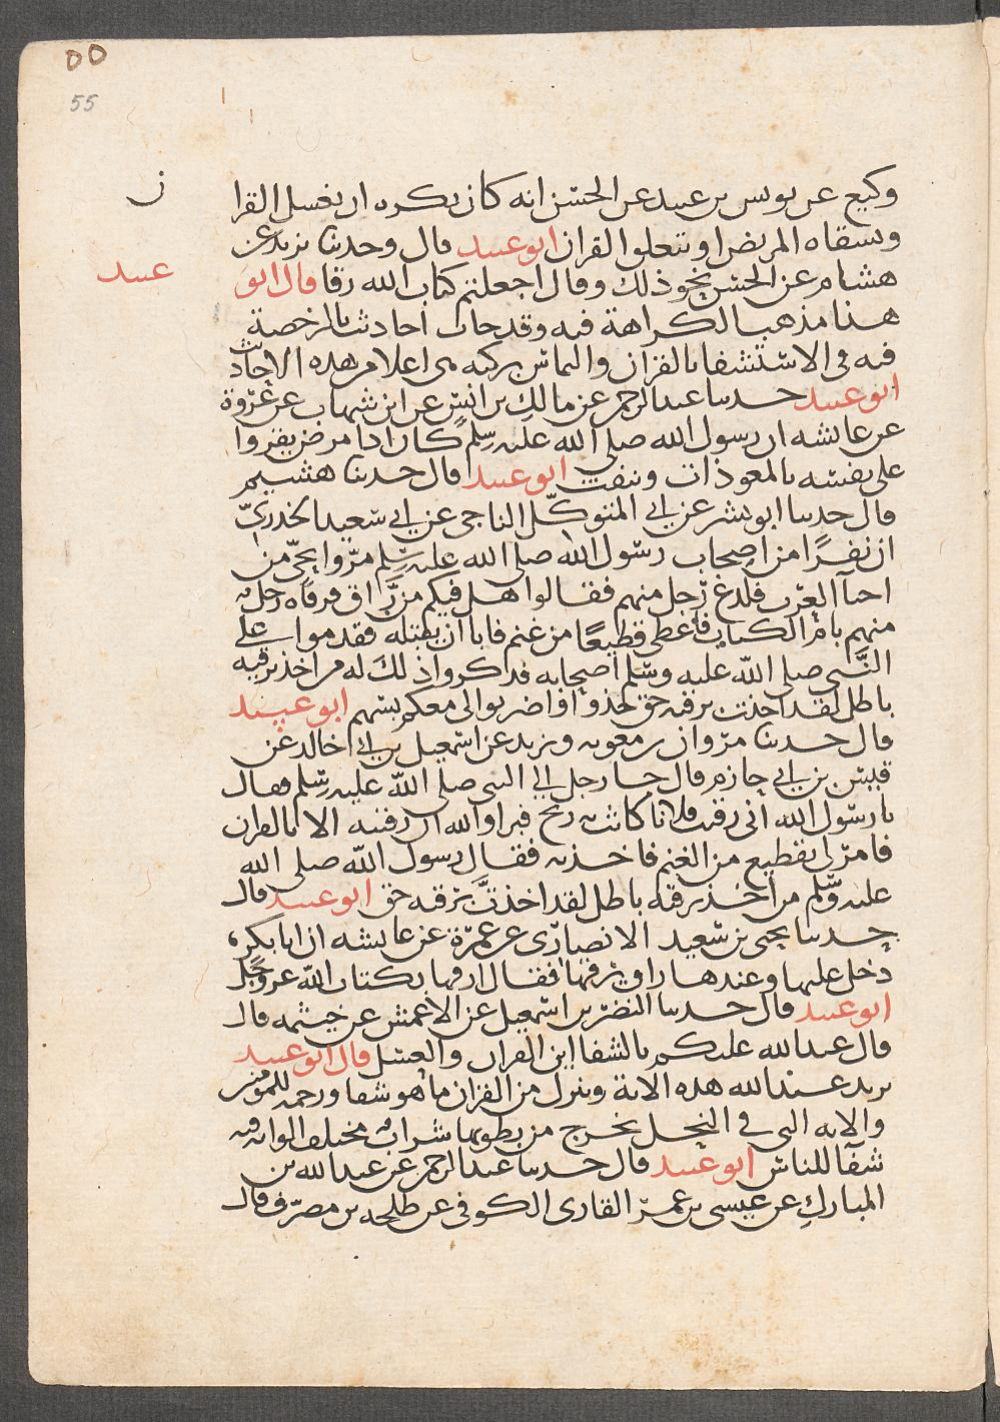 ٥٥
55
وكيع عن يونس بن عبيد عن الحسن انه كان يكره ان يغسل القرا
ن
ويسقاه المريض او يتعلق القران ابو عبيد قال وحدثنا يزيد عن
هشام عن الحسن بنحو ذلك وقال اجعلتم كتاب الله رقا قال ابو
عبيد
هذا مذهب الكراهة فيه وقد جات احاديث بالرخصة
فيه في الاستشفا بالقران والتماس بركته هي اعلا من هذه الاحاديث
ابو عبيد حدثنا عبد الرحمن عن مالك بن انس عن ابن شهاب عن عروة
عن عايشه ان رسول الله صلى الله عليه وسلم كان اذا مرض يقروا
على نفسه بالمعوذات وينفث ابو عبيد قال حدثنا هشيم
قال حدثنا ابو بشر عن ابي المتوكل الناجي عن ابي سعيد الخدري
ان نفرا من اصحاب رسول الله صلى الله عليه وسلم مروا بحي من
احيآ العرب فلدغ رجل منهم فقالوا هل فيكم من راق فرقاه رجل
منهم بام الكتاب فاعطي قطيعا من غنم فابا ان يقبله فقدموا على
النبي صلى الله عليه وسلم اصحابه فذكروا ذلك له من اخذ برقيه
باطل لقد اخذت برقيه حق خذوا واضربوا لي معكم بسهم ابو عبيد
قال حدثنا مروان بن معويه ويزيد عن اسمعيل بن ابي خالد عن
قيس بن ابي حازم قال جا رجل الى النبي صلى الله عليه وسلم فقال
يا رسول الله اني رقيت فلانا كانت به ريح فبرا والله ان رقيته الا بالقران
فامر لي بقطيع من الغنم فاخذته فقال رسول الله صلى الله
عليه وسلم من اخذ برقيه باطل لقد اخذت برقيه حق ابو عبيد قال
حدثنا يحيى بن سعيد الانصاري عن عمرة عن عايشه ان ابا بكر
دخل عليها وعندها راق يرقيها فقال ارقها بكتاب الله عز وجل
ابو عبيد قال حدثنا النضر بن اسمعيل عن الاعمش عن خيثمه قال
قال عبد الله عليكم بالشفاين القران والعسل قال ابو عبيد
يريد عبد الله هذه الاية وننزل من القران ما هو شفا ورحمه للمومنين
والايه التي في النحل يخرج من بطونها شراب مختلف الوانه فيه
شفآ للناس ابو عبيد قال حدثنا عبد الرحمن عن عبد الله بن
المبارك عن عيسى بن عمر القاري الكوفي عن طلحه بن مصرف قال